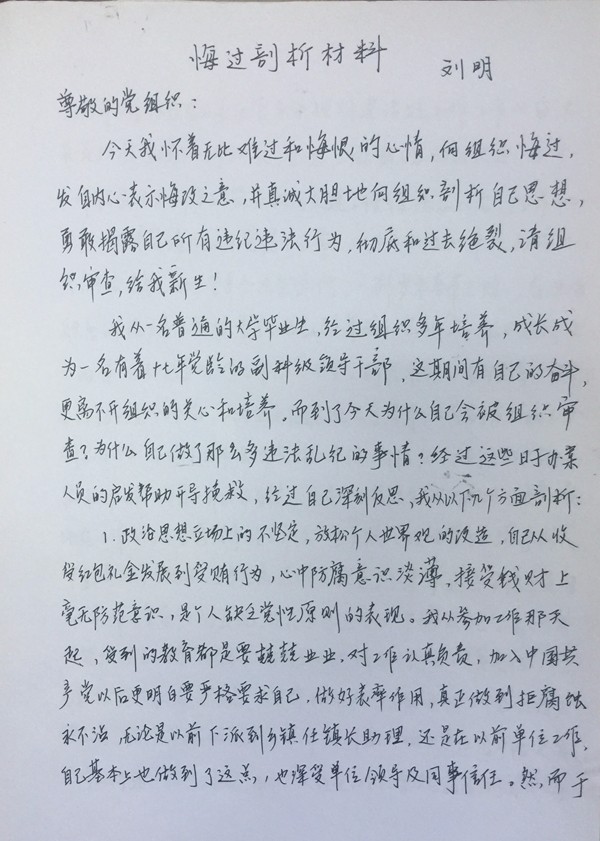 悔过剖析材料
刘明
尊敬的党组织：
今天我怀着无比难过和悔恨的心情，向组织悔过，
发自内心表示悔改之意，并真诚大胆地向组织剖析自己思想，
勇敢揭露自己所有违纪违法行为，彻底和过去绝裂，请组
织审查，给我新生！
我从一名普通的大学毕业生，经过组织多年培养，成长成
为一名有着十七年党龄的副科级领导干部，这期间有自己的奋斗，
更离不开组织的关心和培养。而到了今天为什么自己会被组织审
查？为什么自己做了那么多违法乱纪的事情？经过这些日子办案
人员的启发帮助开导挽救，经过自己深刻反思，我从以下几个方面剖析：
1.政治思想立场上的不坚定，放松个人世界观的改造，自己从收
受红包礼金发展到受贿行为，心中防腐意识淡薄，接受钱财上
毫无防范意识，是个人缺乏党性原则的表现。我从参加工作那天
起，受到的教育都是要兢兢业业，对工作认真负责，加入中国共
产党以后更明白要严格要求自己，做好表率作用，真正做到拒腐蚀
永不沾，无论是以前下派到乡镇任镇长助理，还是在以前单位工作，
自己基本上也做到了这点，也深受单位领导及同事信任。然而于